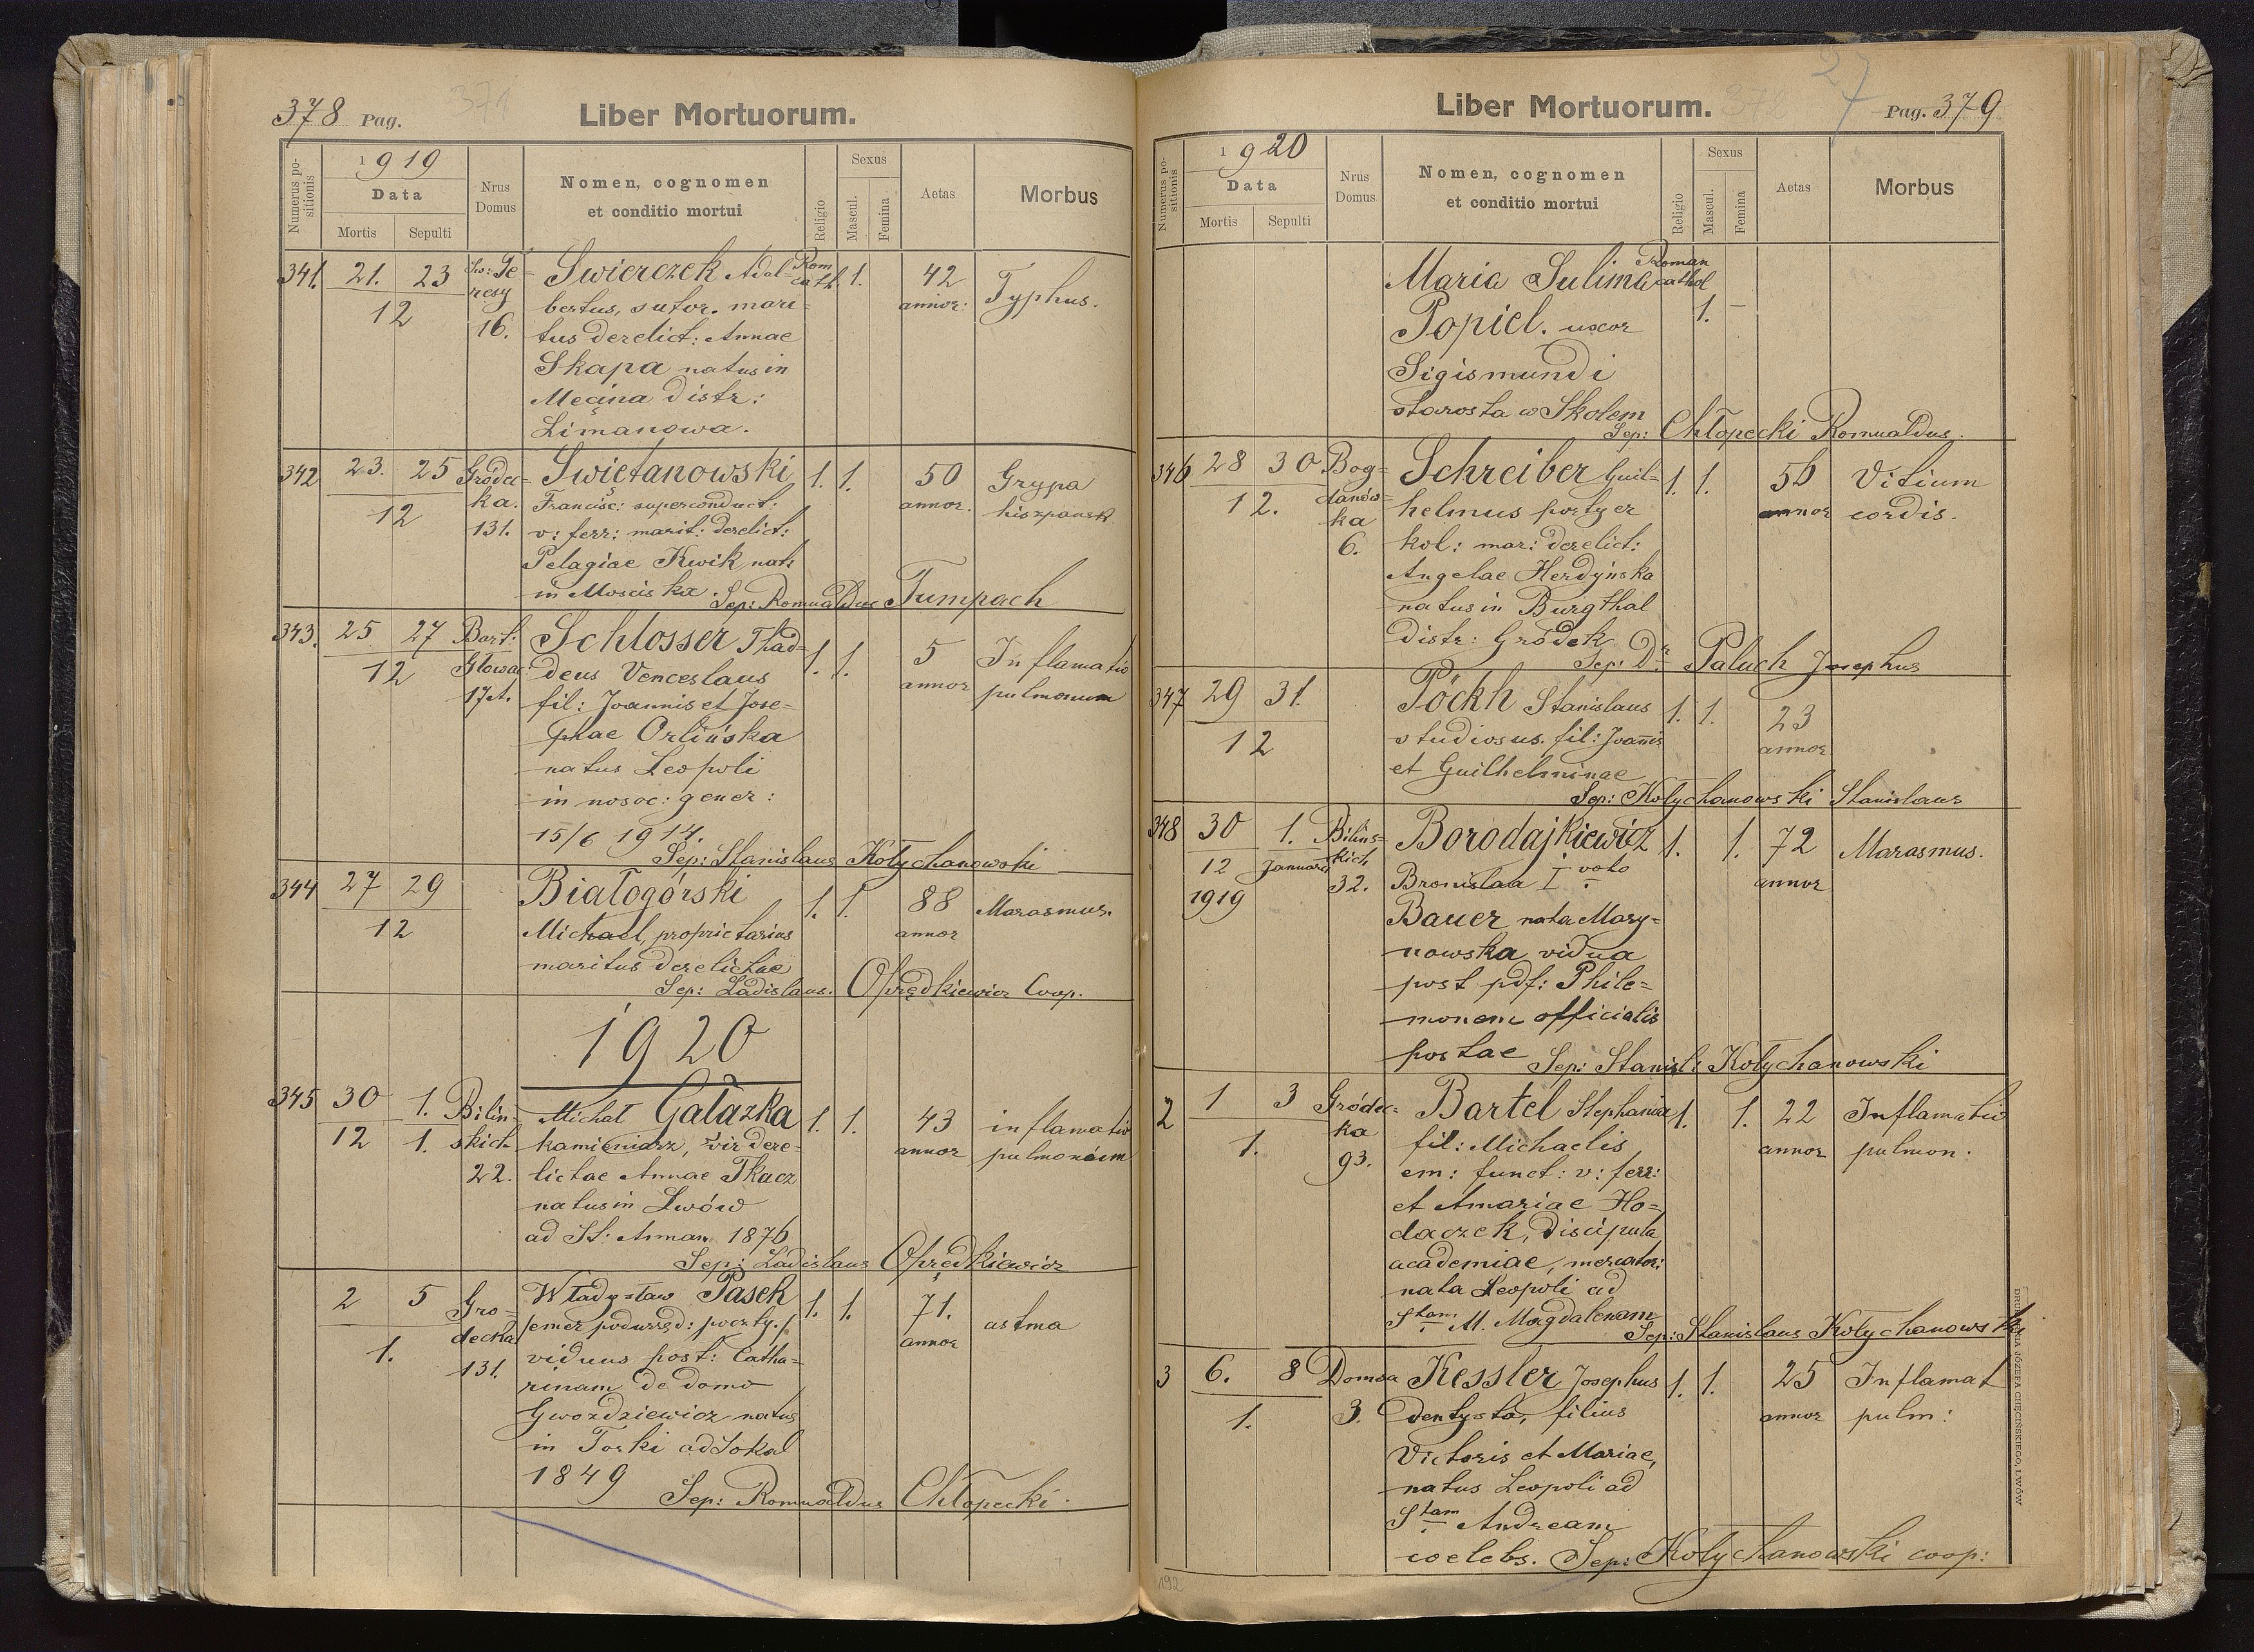 378 Pag.
371
Liber Mortuorum.
Numerus positionis
1919
Data
Mortis
Sepulti
Nrus Domus
Nomen, cognomen
et conditio mortui
Religio
Sexus
Mascul.
Femina
Aetas
Morbus
341. 21. 23 Św: Te- Swierczek Adal- Rom 1. 42 Typhus.
12 resy bertus, sutor. mari- cath. annor:
16. tus derelict: Annae
Skapa natus in
Męcina distr:
Limanowa.
342 23. 25 Gródec- Swiętanowski 1. 1. 50 Grypa
12 ka. Francisc: superconduct: annor. hiszpańsk
131. v: ferr: marit: derelict:
Pelagiae Kwik nat:
in Mościska. Sep: Romualdus Tumpach
343. 25 27 Bart: Schlosser Thad- 1. 1. 5 Inflamatio
12 Głowac deus Venceslaus annor pulmonum
17A. fil: Joannis et Jose-
phae Orlińska
natus Leopoli
in nosoc: gener:
15/6 1914.
Sep: Stanislaus Kotychanowski
344 27 29 Białogórski 1. 1. 88 Marasmus.
12 Michael, proprietarius annor
maritus derelictae
Sep: Ladislaus. Oprędkiewicz Coop.
1920
345 30 1. Bilin- Michał Gałązka 1. 1. 43 inflamatio
12 1. skich kamieniarz, vir dere- annor pulmonum
22. lictae Annae Tkacz
natus in Lwów
ad St: Annam 1876
Sep: Ladislaus Oprędkiewicz
2 5 Gro- Władysław Pasek 1. 1. 71. astma
1. decka emer podurzęd: poczty. annor
131. viduus post: Catha-
rinam de domo
Gwoździewicz natus
in Torki ad Sokal
1849
Sep: Romualdus Chłopecki.
27
Liber Mortuorum.
372
Pag. 379
Numerus positionis
1920
Data
Mortis
Sepulti
Nrus Domus
Nomen, cognomen
et conditio mortui
Religio
Sexus
Mascul.
Femina
Aetas
Morbus
Maria Sulima Roman
cathol
Popiel. uxor 1. –
Sigismundi
starosta w Skolem
Sep: Chłopecki Romualdus.
346 28 30 Bog- Schreiber Guil- 1. 1. 56 Vitium
12. danów- helmus portyer annor cordis.
ka kol: mar: derelict:
6. Angelae Herdyńska
natus in Burgthal
distr: Gródek
Sep: Dr Paluch Josephus
347 29 31. Pöckh Stanislaus 1. 1. 23
12 studiosus. fil: Joannis annor
et Guilhelminae
Sep: Kotychanowski Stanislaus
348 30 1. Bilins- Borodajkiewicz 1. 1. 72 Marasmus.
12 Januarii kich Bronislaa I voto annor
1919 32. Bauer nata Mary-
nowska vidua
post pdf: Phile-
monem officialis
postae Sep: Stanisl: Kotychanowski
2 1 3 Gródec- Bartel Stephania 1. 1. 22 Inflamatio
1. ka fil: Michaelis annor pulmon:
93. em: funct: v: ferr:
et Amariae Ho-
daczek, discipula
academiae, mercator:
nata Leopoli ad
Stam M. Magdalenam
Sep: Stanislaus Kotychanowski
3 6. 8 Domsa Kessler Josephus 1. 1. 25 Inflamat
1. 3. dentysta, filius annor pulm:
Victoris et Mariae,
natus Leopoli ad
Stam Andream
coelebs. Sep: Kotychanowski coop:
192
DRUKARNIA JÓZEFA CHĘCIŃSKIEGO, LWÓW